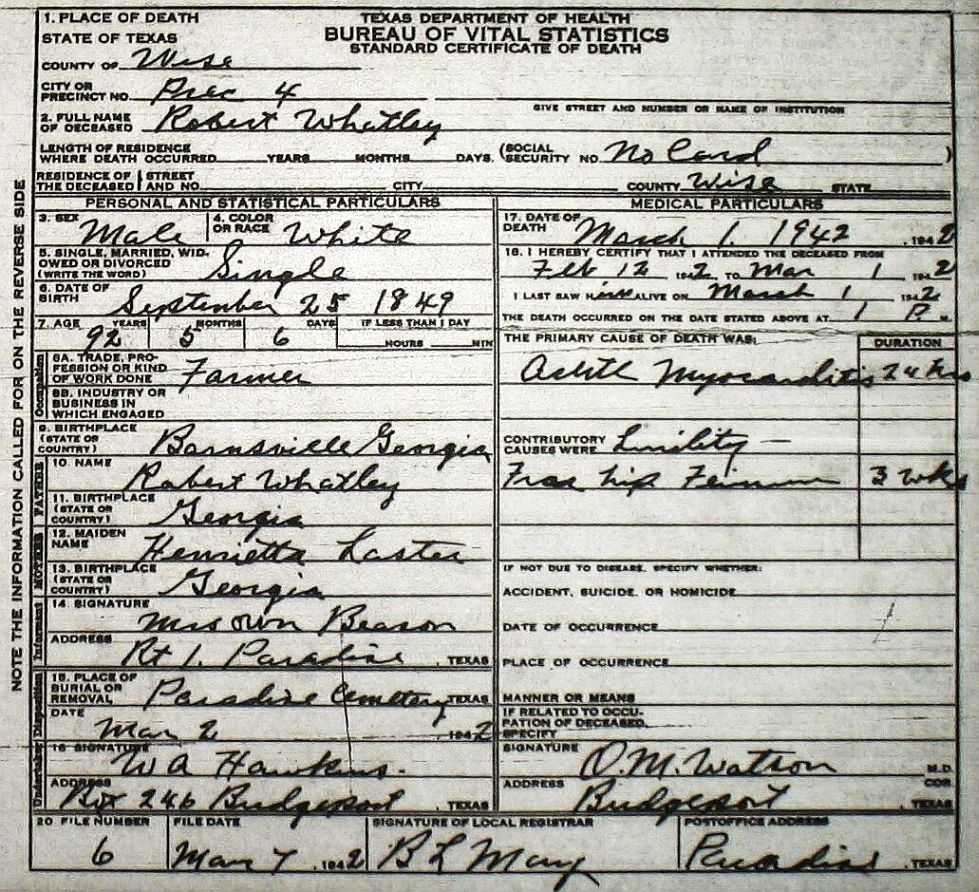 TEXAS DEPARTMENT OF HEALTH
BUREAU OF VITAL STATISTICS
STANDARD CERTIFICATE OF DEATH
NOTE THE INFORMATION CALLED FOR ON THE REVERSE SIDE
1. PLACE OF DEATH
STATE OF TEXAS
COUNTY OF Wise
CITY OR PRECINCT NO. Prec 4
GIVE STREET AND NUMBER OR NAME OF INSTITUTION
2. FULL NAME OF DECEASED Robert Whatley
LENGTH OF RESIDENCE WHERE DEATH OCCURRED YEARS MONTHS DAYS. (SOCIAL SECURITY NO. No Card )
RESIDENCE OF THE DECEASED STREET AND NO. CITY COUNTY Wise STATE
PERSONAL AND STATISTICAL PARTICULARS
3. SEX Male 4. COLOR OR RACE White
5. SINGLE, MARRIED, WIDOWED OR DIVORCED (WRITE THE WORD) Single
6. DATE OF BIRTH September 25 1849
7. AGE YEARS MONTHS DAYS IF LESS THAN 1 DAY
92 5 6 HOURS MIN
Occupation
8A. TRADE, PROFESSION OR KIND OF WORK DONE Farmer
8B. INDUSTRY OR BUSINESS IN WHICH ENGAGED
9. BIRTHPLACE (STATE OR COUNTRY) Barnsville Georgia
FATHER
10. NAME Robert Whatley
11. BIRTHPLACE (STATE OR COUNTRY) Georgia
MOTHER
12. MAIDEN NAME Henrietta Laster
13. BIRTHPLACE (STATE OR COUNTRY) Georgia
Informant
14. SIGNATURE Mrs Orvn Beason
ADDRESS Rt 1. Paradise, TEXAS
Disposition
15. PLACE OF BURIAL OR REMOVAL Paradise Cemetery TEXAS
DATE Mar 2 1942
Undertaker
16 SIGNATURE W A Hawkins.
ADDRESS Box 246 Bridgeport, TEXAS
MEDICAL PARTICULARS
17. DATE OF DEATH March 1. 1942, 1942
18. I HEREBY CERTIFY THAT I ATTENDED THE DECEASED FROM
Feb 12 1942 TO Mar 1 1942
I LAST SAW him ALIVE ON March 1 1942
THE DEATH OCCURRED ON THE DATE STATED ABOVE AT 1 P. M.
THE PRIMARY CAUSE OF DEATH WAS: DURATION
Acute Myocarditis 24 hrs
CONTRIBUTORY CAUSES WERE
Frac hip 3 wks
IF NOT DUE TO DISEASE, SPECIFY WHETHER:
ACCIDENT, SUICIDE, OR HOMICIDE
DATE OF OCCURRENCE
PLACE OF OCCURRENCE
MANNER OR MEANS
IF RELATED TO OCCUPATION OF DECEASED, SPECIFY
SIGNATURE O.M. Watson M.D.
COR.
ADDRESS Bridgeport, TEXAS
20 FILE NUMBER FILE DATE SIGNATURE OF LOCAL REGISTRAR POSTOFFICE ADDRESS
6 Mar 7, 1942 B L Mary Paradise, TEXAS